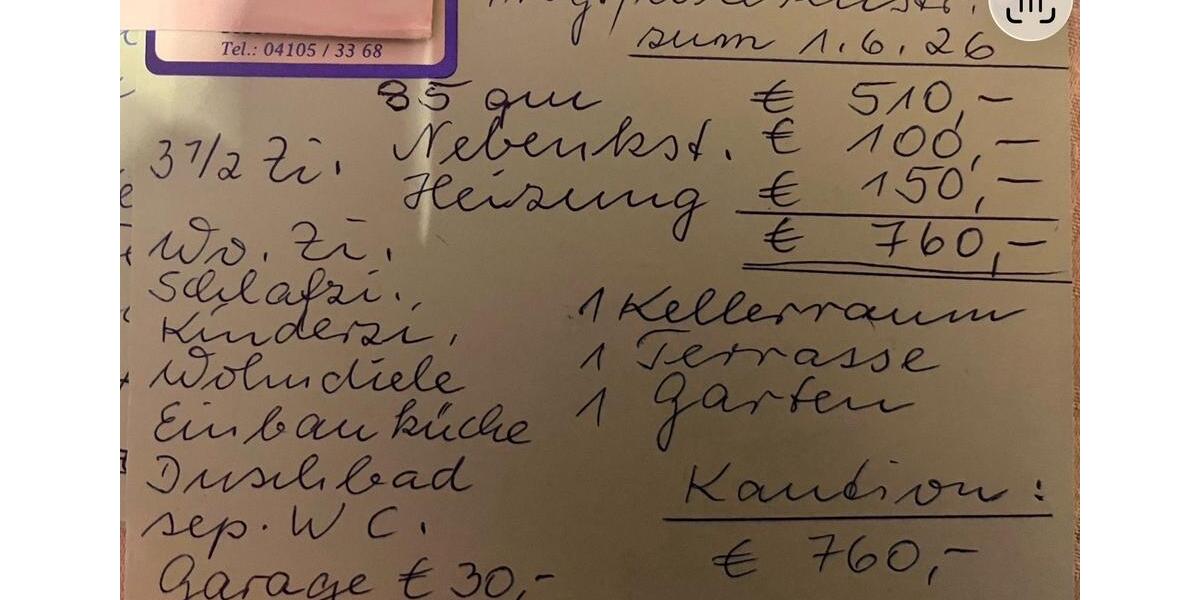 Tel.: 04105 / 33 68
zum 1.6.26
85 qm € 510,-
3 1/2 Zi. Nebenkst. € 100,-
Heizung € 150,-
€ 760,-
Wo. Zi.
Schlafzi.,
Kinderzi,
Wohndiele
Einbauküche
Duschbad
sep. WC.
Garage € 30,-
1 Kellerraum
1 Terrasse
1 Garten
Kaution:
€ 760,-